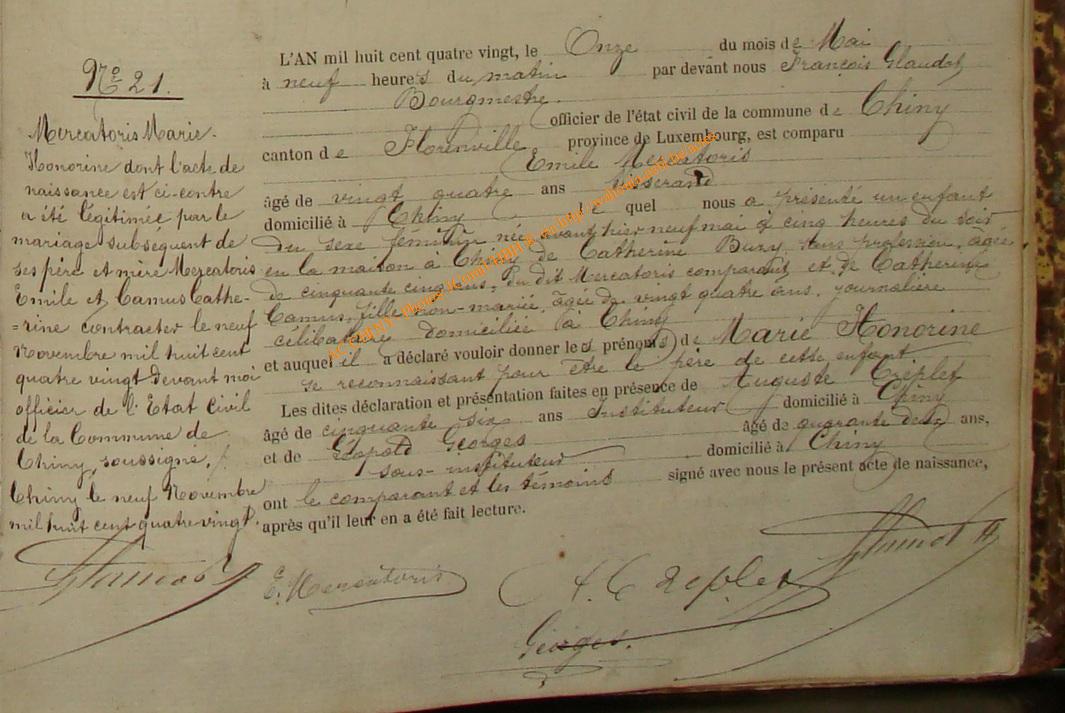 L'AN mil huit cent quatre vingt, le Onze du mois de Mai
à neuf heures du matin par devant nous François Glaudot
Bourgmestre
officier de l'état civil de la commune de Chiny
canton de Florenville province de Luxembourg, est comparu
Emile Mercatoris
âgé de vingt quatre ans tisserand
domicilié à Chiny le quel nous a présenté un enfant
du sexe féminin né avant hier neuf mai à cinq heures du soir
en la maison à Chiny de Catherine Buzy, sans profession, âgée
de cinquante cinq ans, du dit Mercatoris comparant et de Catherine
Camus, fille non-mariée, âgée de vingt quatre ans, journalière
célibataire domiciliée à Chiny
et auquel il a déclaré vouloir donner les prénoms de Marie Honorine
se reconnaissant pour être le père de cette enfant
Les dites déclaration et présentation faites en présence de Auguste Créplet
âgé de cinquante six ans Instituteur domicilié à Chiny
et de Léopold Georges âgé de quarante deux ans,
sous-instituteur domicilié à Chiny
ont le comparant et les témoins signé avec nous le présent acte de naissance,
après qu'il leur en a été fait lecture.
N° 21.
Mercatoris Marie-
Honorine dont l'acte de
naissance est ci-contre
a été légitimée par le
mariage subséquent de
ses père et mère Mercatoris
Emile et Camus Cathe-
=rine contracter le neuf
Novembre mil huit cent
quatre vingt devant moi
officier de l'Etat civil
de la Commune de
Chiny, soussigné,
Chiny le neuf Novembre
mil huit cent quatre vingt.
Glaudot
E. Mercatoris
A. Créplet
Glaudot
Georges.